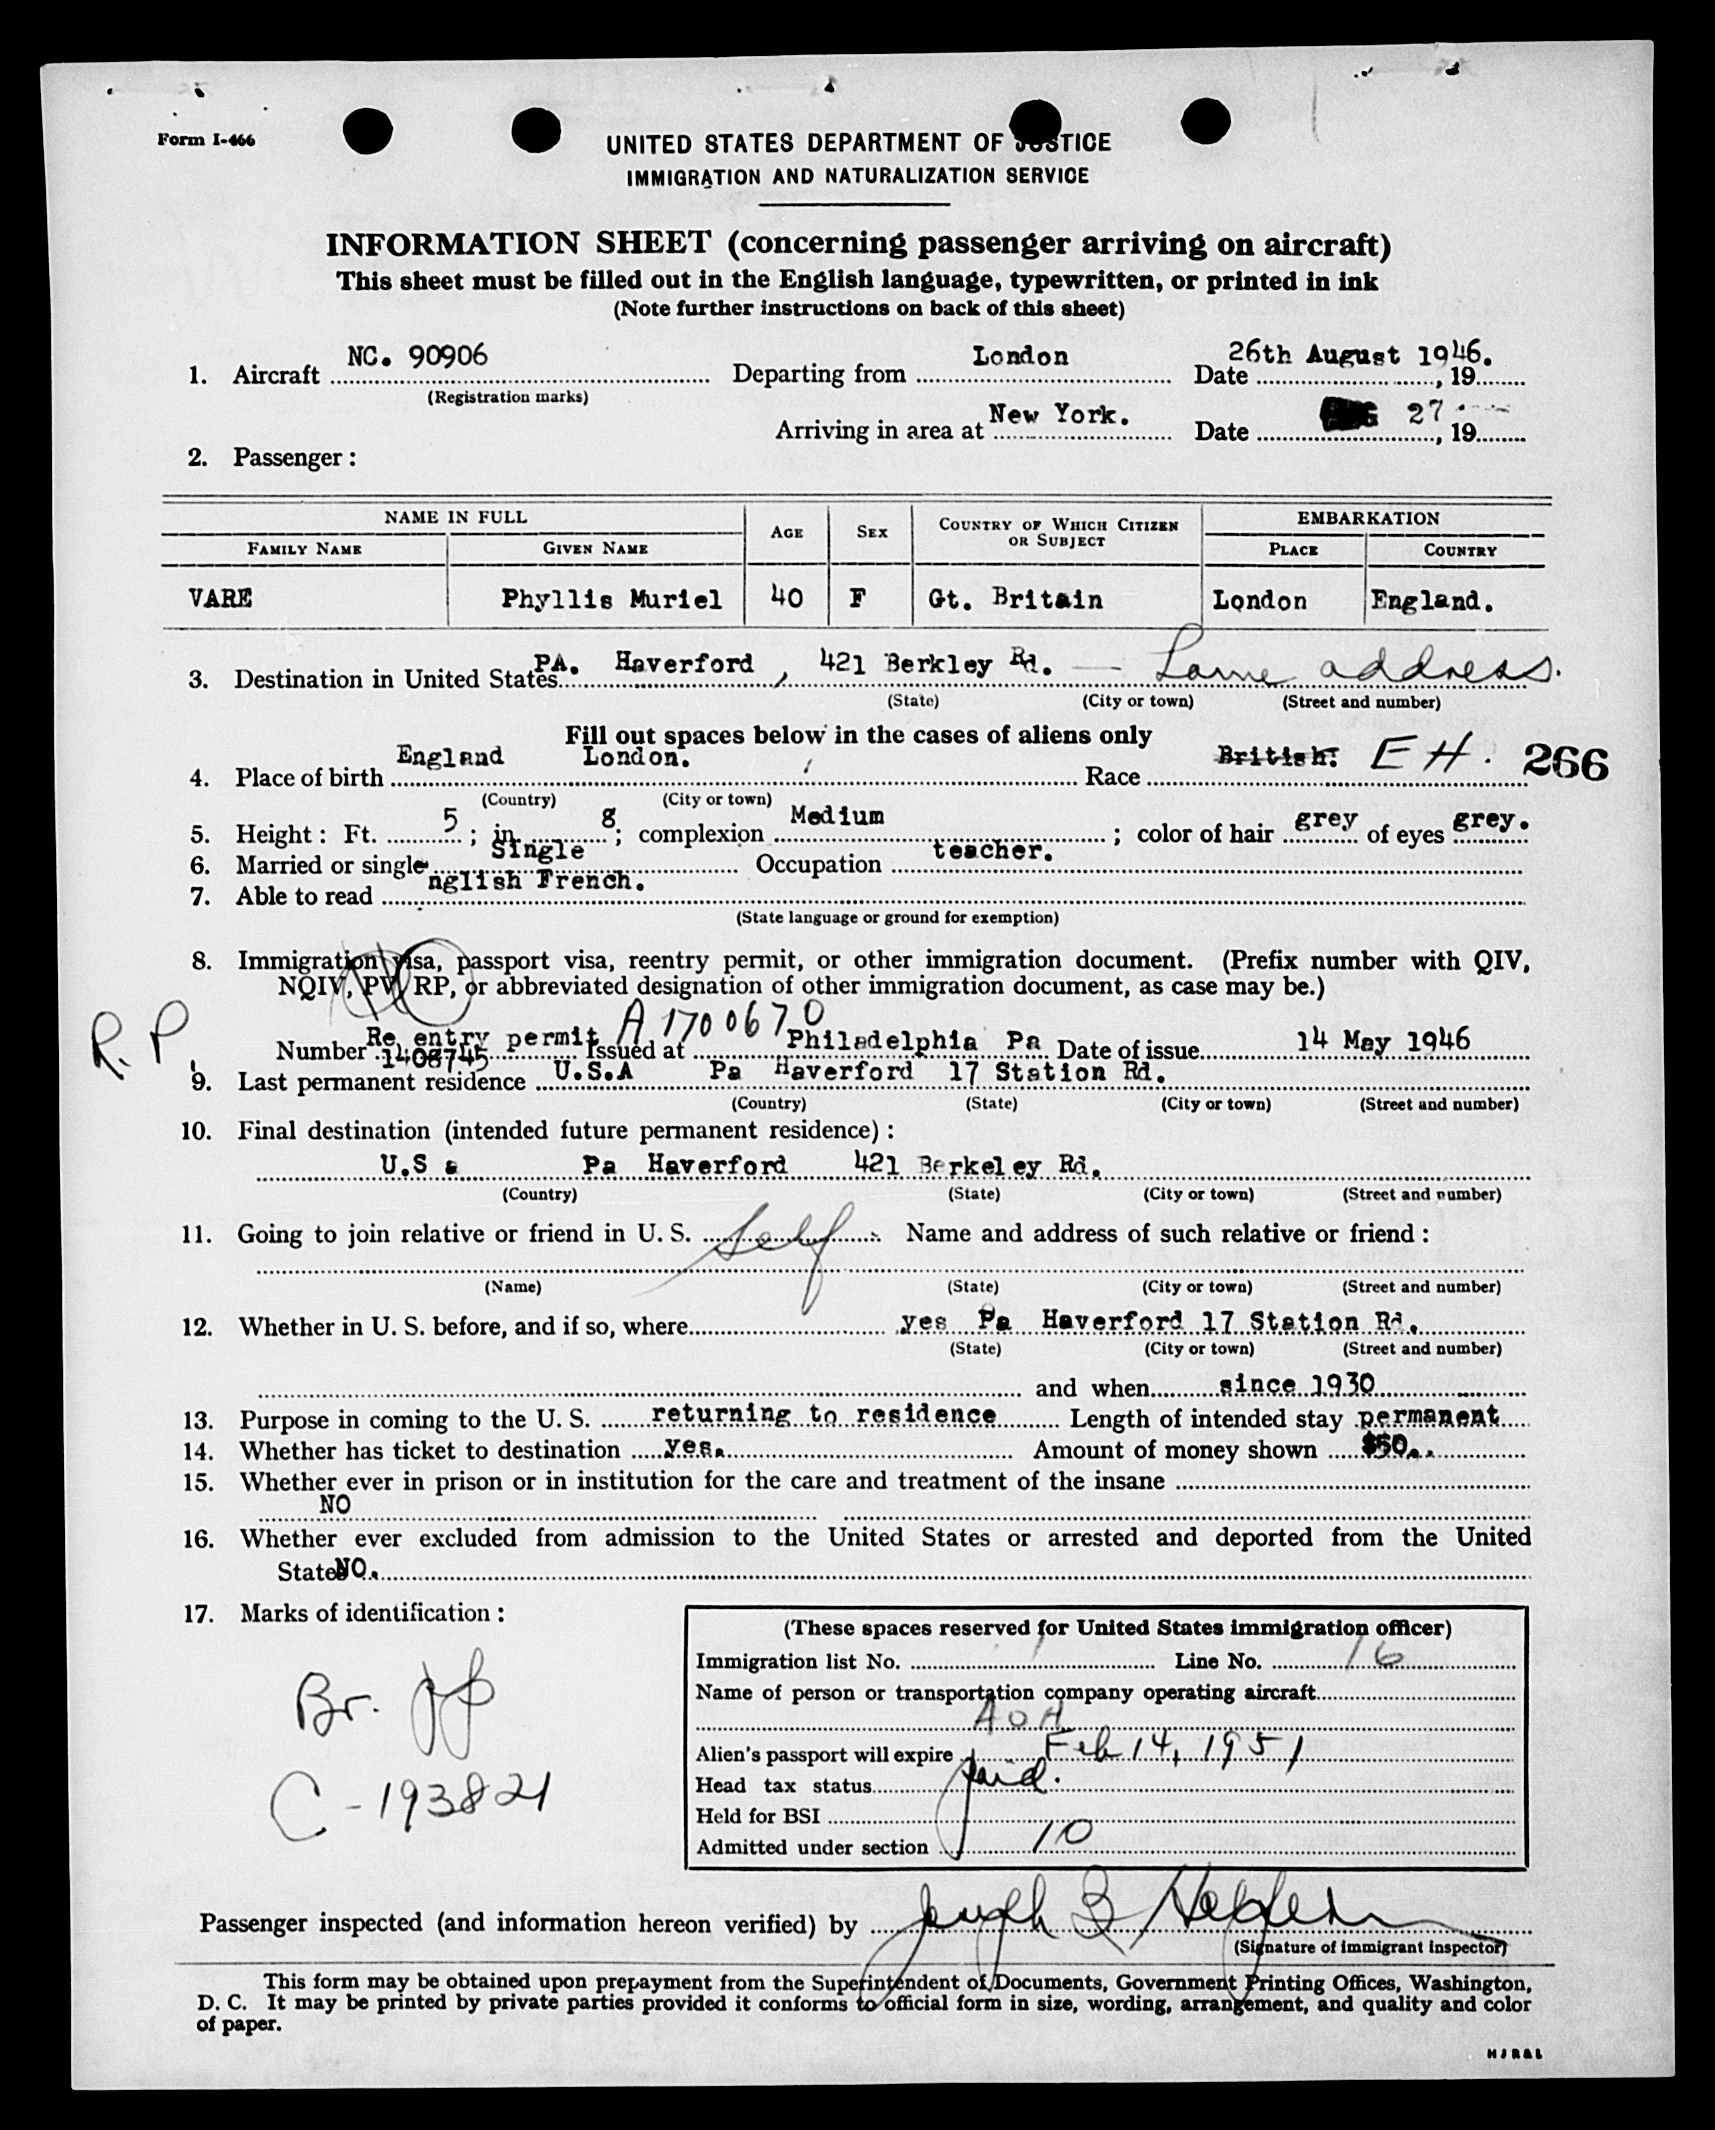 Form I-466
UNITED STATES DEPARTMENT OF JUSTICE
IMMIGRATION AND NATURALIZATION SERVICE
INFORMATION SHEET (concerning passenger arriving on aircraft)
This sheet must be filled out in the English language, typewritten, or printed in ink
(Note further instructions on back of this sheet)
1. Aircraft NC. 90906 Departing from London Date 26th August 1946. , 19
(Registration marks)
Arriving in area at New York. Date AUG 27 , 19
2. Passenger :
NAME IN FULL AGE SEX COUNTRY OF WHICH CITIZEN OR SUBJECT EMBARKATION
FAMILY NAME GIVEN NAME PLACE COUNTRY
VARE Phyllis Muriel 40 F Gt. Britain London England.
3. Destination in United States PA. Haverford , 421 Berkley Rd. — Same address.
(State) (City or town) (Street and number)
Fill out spaces below in the cases of aliens only
4. Place of birth England London. Race British: EH. 266
(Country) (City or town)
5. Height : Ft. 5 ; in. 8 ; complexion Medium ; color of hair grey of eyes grey.
6. Married or single Single Occupation teacher.
7. Able to read nglish French.
(State language or ground for exemption)
8. Immigration visa, passport visa, reentry permit, or other immigration document. (Prefix number with QIV,
NQIV, PV, RP, or abbreviated designation of other immigration document, as case may be.)
R.P. Number Re entry permit 1408745 A1700670 Issued at Philadelphia Pa Date of issue 14 May 1946
9. Last permanent residence U.S.A Pa Haverford 17 Station Rd.
(Country) (State) (City or town) (Street and number)
10. Final destination (intended future permanent residence) :
U.S a Pa Haverford 421 Berkeley Rd.
(Country) (State) (City or town) (Street and number)
11. Going to join relative or friend in U. S. Self : Name and address of such relative or friend :
(Name) (State) (City or town) (Street and number)
12. Whether in U. S. before, and if so, where yes Pa Haverford 17 Station Rd.
(State) (City or town) (Street and number)
and when since 1930
13. Purpose in coming to the U. S. returning to residence Length of intended stay permanent
14. Whether has ticket to destination yes. Amount of money shown $50..
15. Whether ever in prison or in institution for the care and treatment of the insane
NO
16. Whether ever excluded from admission to the United States or arrested and deported from the United
States NO.
17. Marks of identification :
(These spaces reserved for United States immigration officer)
Immigration list No. 1 Line No. 16
Name of person or transportation company operating aircraft
AOA
Alien's passport will expire Feb 14, 1951
Head tax status paid.
Held for BSI
Admitted under section 10
Br. pp
C-193821
Passenger inspected (and information hereon verified) by Joseph
(Signature of immigrant inspector)
This form may be obtained upon prepayment from the Superintendent of Documents, Government Printing Offices, Washington,
D. C. It may be printed by private parties provided it conforms to official form in size, wording, arrangement, and quality and color
of paper.